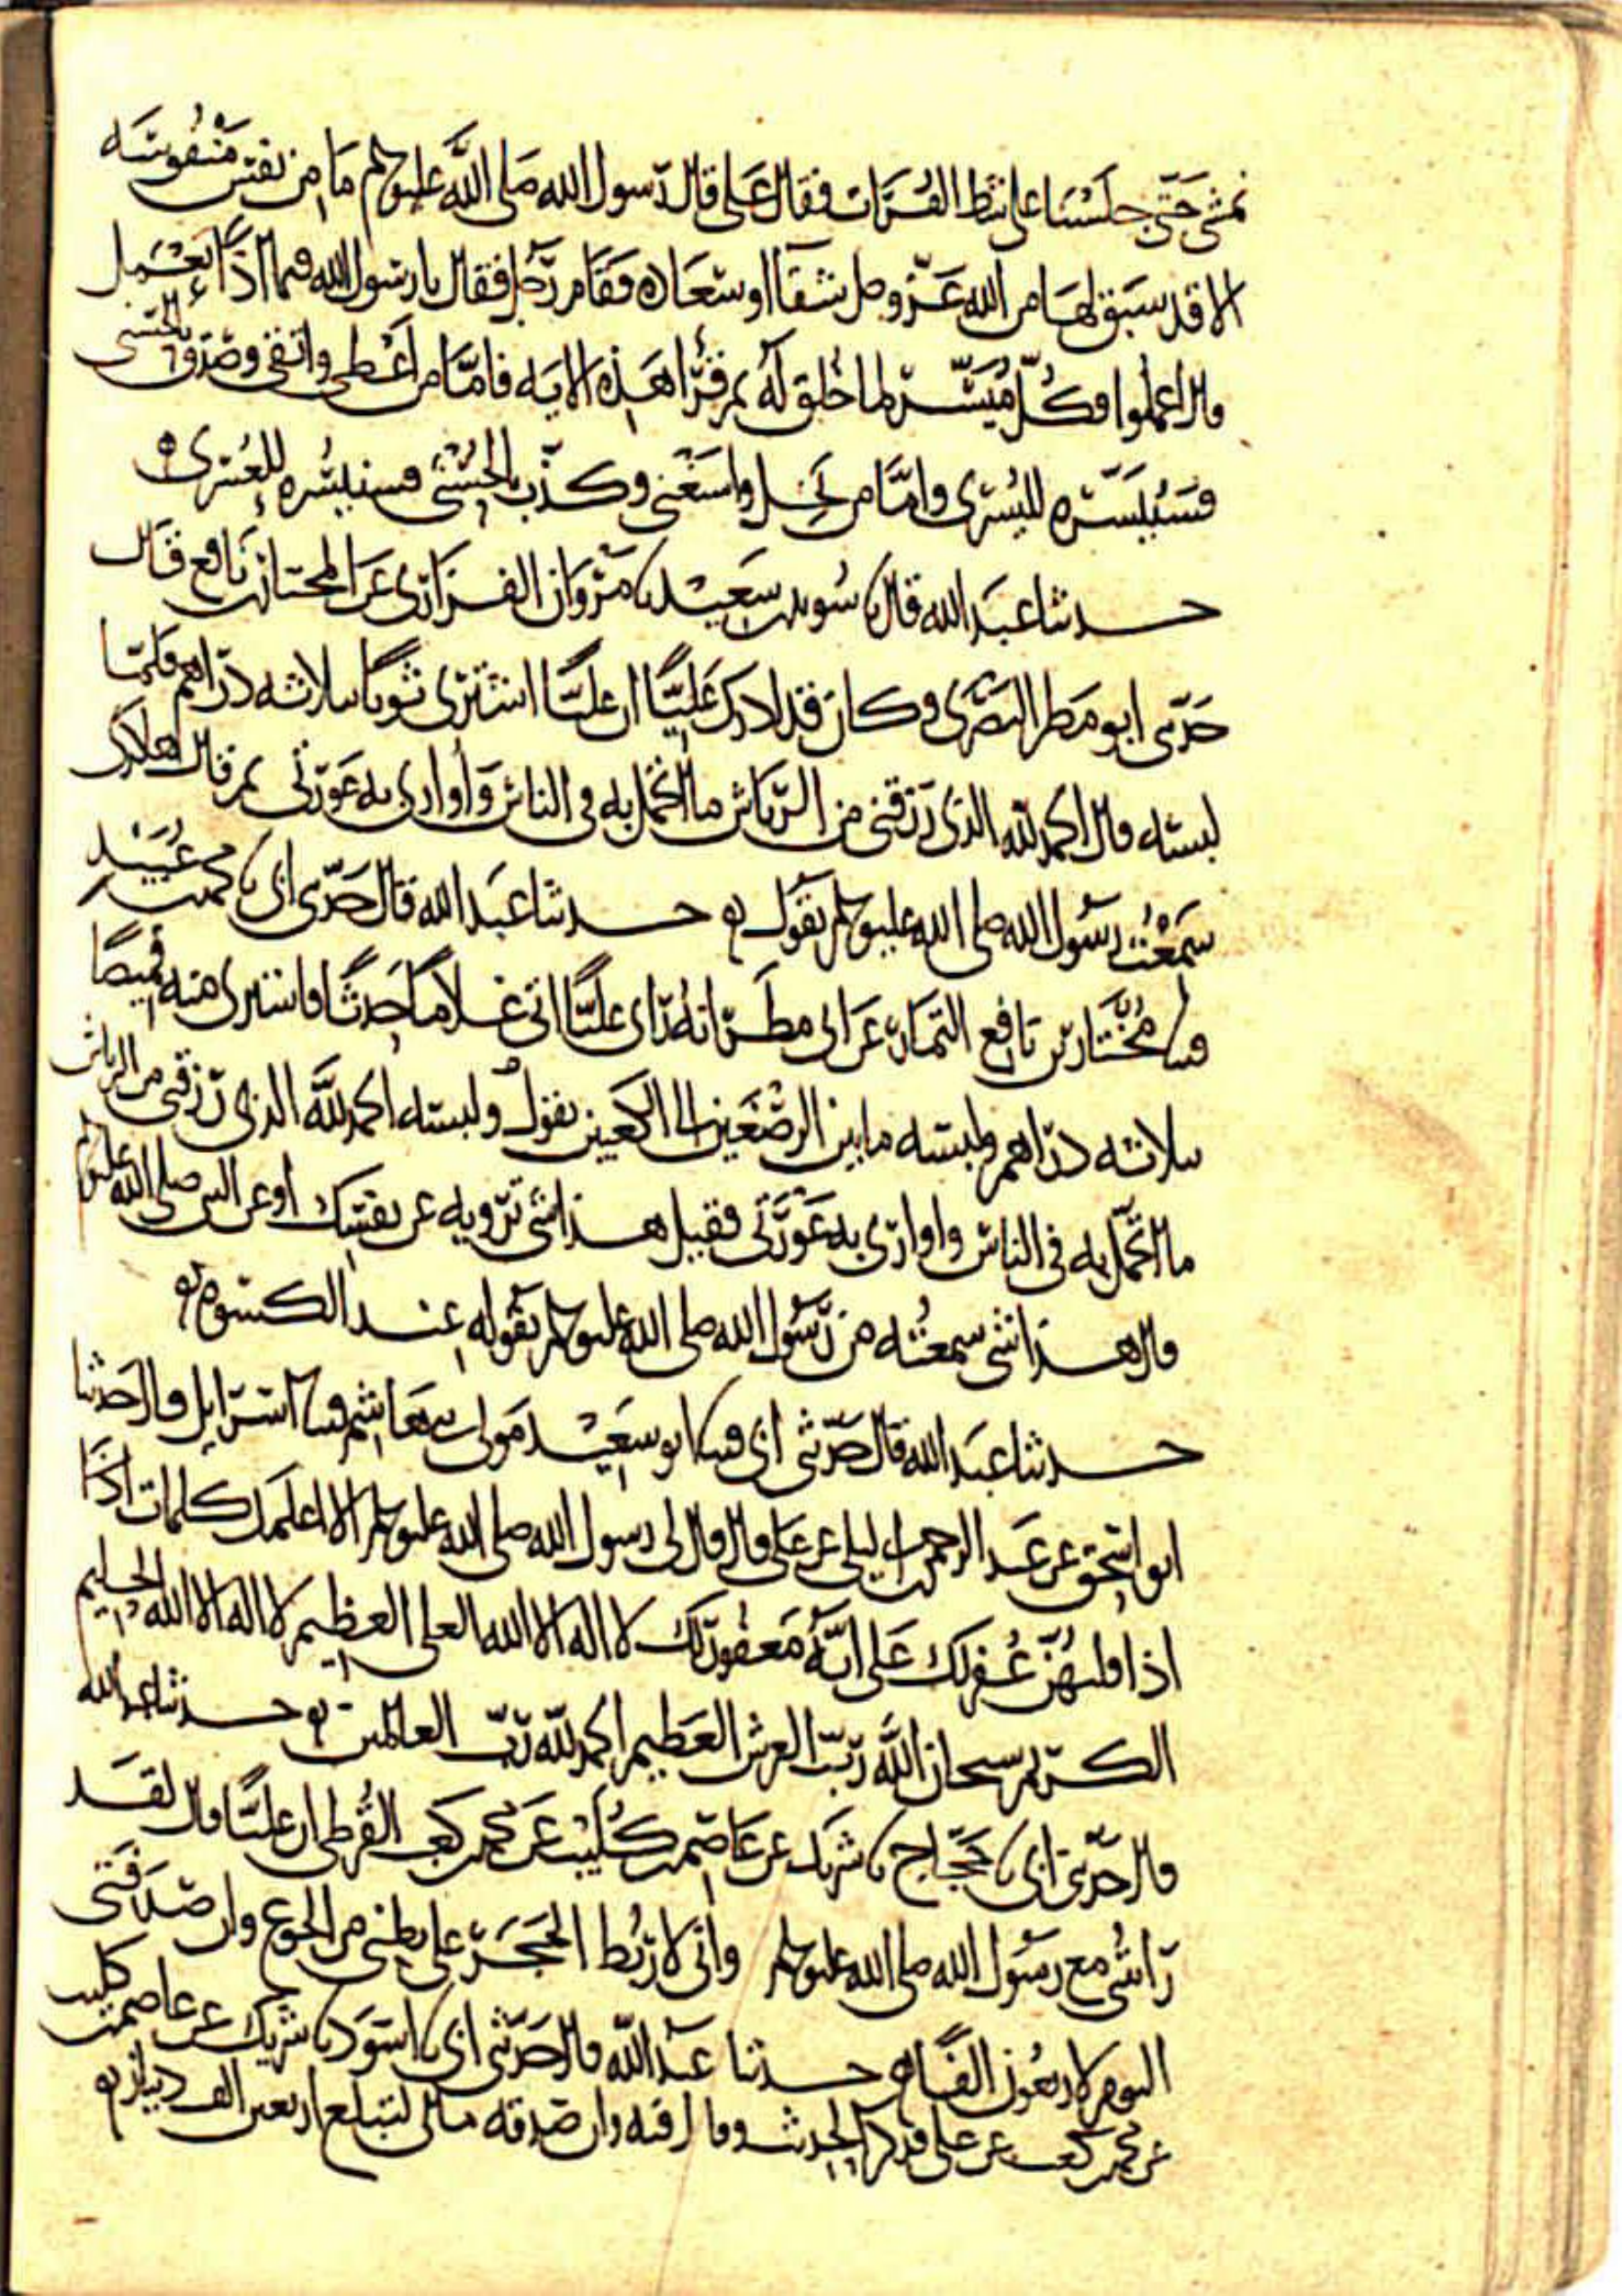 نمشي حتى جلسنا على شاط الفرات فقال علي قال رسول الله صلى الله عليه وسلم ما من نفس منفوسه
الا قد سبق لها من الله عز وجل شقآ او سعاده فقام رجل فقال يا رسول الله فيما اذا نعمل
قال اعملوا فكل ميسر لما خلق له ثم قرأ هذه الايه فاما من اعطى واتقى وصدق بالحسنى
فسنيسره لليسرى واما من بخل واستغنى وكذب بالحسنى فسنيسره للعسرى
حدثنا عبد الله قال نا سويد بن سعيد نا مروان الفزاري عن المختار بن نافع قال
حدثني ابو مطر البصري وكان قد ادرك عليا ان عليا اشترى ثوبا بثلاثه دراهم فلما
لبسه قال الحمد لله الذي رزقني من الرياش ما اتجمل به في الناس وأواري به عورتي ثم قال هكذا
سمعت رسول الله صلى الله عليه وسلم يقول حدثنا عبد الله قال حدثني ابي نا محمد بن عبيد
ثنا مختار بن نافع التمار عن ابي مطر انه رأى عليا اتى غلاما حدثا فاشترى منه قميصا
بثلاثه دراهم ولبسه ما بين الرصغين الى الكعبين يقول ولبسه الحمد لله الذي رزقني من الرياش
ما اتجمل به في الناس واواري به عورتي فقيل هذا شي ترويه عن نفسك او عن النبي صلى الله عليه وسلم
قال هذا شي سمعته من رسول الله صلى الله عليه وسلم يقوله عند الكسوه
حدثنا عبد الله قال حدثني ابي ثنا ابو سعيد مولى بني هاشم ثنا اسرايل قال حدثنا
ابو اسحق عن عبد الرحمن بن ابي ليلى عن علي قال قال لي رسول الله صلى الله عليه وسلم الا اعلمك كلمات اذا
اذا قلتهن غفر لك على انه مغفور لك لا اله الا الله العلي العظيم لا اله الا الله الحليم
الكريم سبحان الله رب العرش العظيم الحمد لله رب العالمين حدثنا عبد الله
قال حدثني ابي نا حجاج نا شريك عن عاصم بن كليب عن محمد بن كعب القرظي ان عليا قال لقد
رأيتني مع رسول الله صلى الله عليه وسلم واني لاربط الحجر على بطني من الجوع وان صدقتي
اليوم لاربعون الفا حدثنا عبد الله قال حدثني ابي نا اسود نا شريك عن عاصم بن كليب
عن محمد بن كعب عن علي فذكر الحديث وقال فيه وان صدقه مالي لتبلغ اربعين الف دينار